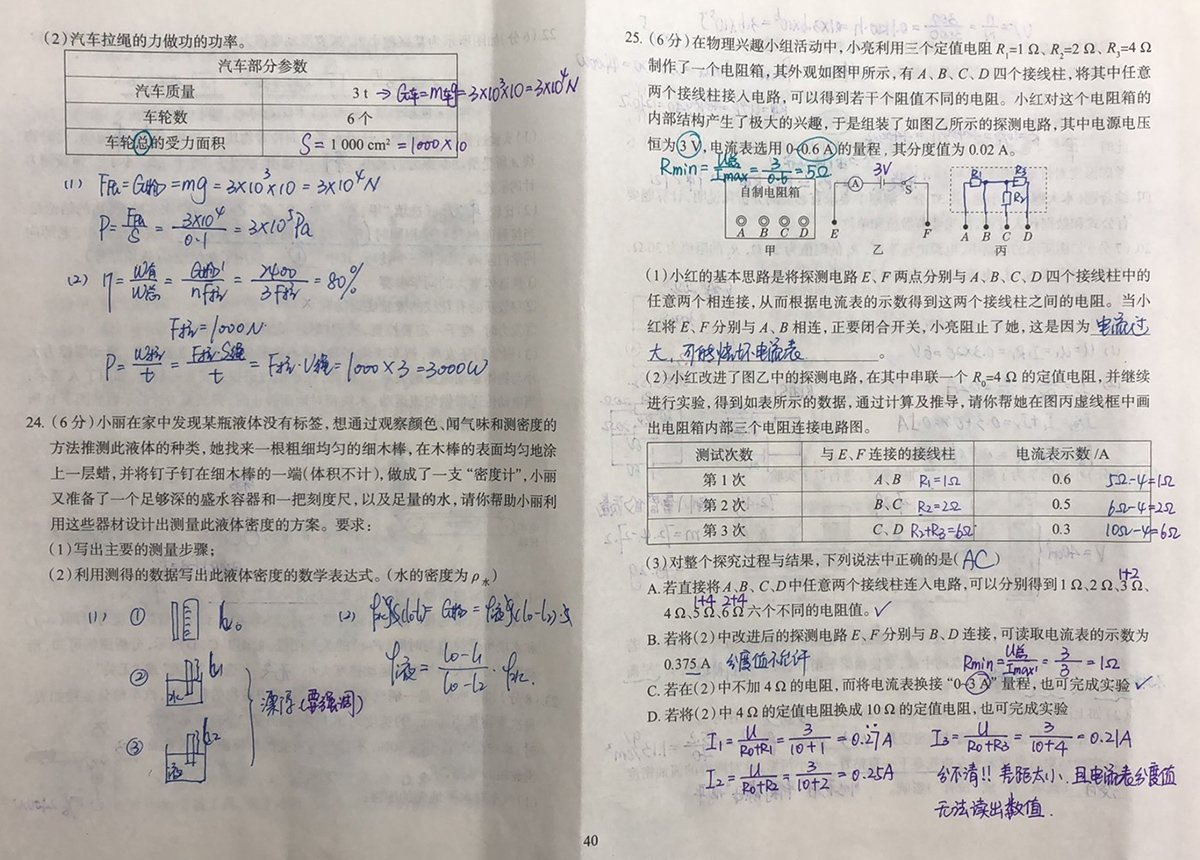 (2)汽车拉绳的力做功的功率。
汽车部分参数
汽车质量 3 t →G车=m车g=3×10³×10=3×10⁴N
车轮数 6 个
车轮总的受力面积 S= 1 000 cm² =1000×10
(1) F压=G物=mg=3×10³×10=3×10⁴N
P=F压/S=3×10⁴/0.1=3×10⁵Pa
(2) η=W有/W总=G物/nF拉=2400/3F拉=80%
F拉=1000N
P=W拉/t=F拉·S绳/t=F拉·V绳=1000×3=3000W
24.(6 分)小丽在家中发现某瓶液体没有标签,想通过观察颜色、闻气味和测密度的
方法推测此液体的种类,她找来一根粗细均匀的细木棒,在木棒的表面均匀地涂
上一层蜡,并将钉子钉在细木棒的一端(体积不计),做成了一支“密度计”,小丽
又准备了一个足够深的盛水容器和一把刻度尺,以及足量的水,请你帮助小丽利
用这些器材设计出测量此液体密度的方案。要求:
(1)写出主要的测量步骤;
(2)利用测得的数据写出此液体密度的数学表达式。(水的密度为ρ水)
(1) ① l₀
② l₁ 水
③ l₂ 液
漂浮(要强调)
(2) ρ水gS(l₀-l₁)=G物=ρ液g(l₀-l₂)·S
ρ液=(l₀-l₁)/(l₀-l₂)·ρ水.
25.(6 分)在物理兴趣小组活动中,小亮利用三个定值电阻 R₁=1 Ω、R₂=2 Ω、R₃=4 Ω
制作了一个电阻箱,其外观如图甲所示,有 A、B、C、D 四个接线柱,将其中任意
两个接线柱接入电路,可以得到若干个阻值不同的电阻。小红对这个电阻箱的
内部结构产生了极大的兴趣,于是组装了如图乙所示的探测电路,其中电源电压
恒为 3 V,电流表选用 0~0.6 A 的量程,其分度值为 0.02 A。
Rmin=U总/Imax=3/0.6=5Ω
3V
自制电阻箱
A B C D
甲
A S
E F
乙
R₁ R₃
R₂
A B C D
丙
(1)小红的基本思路是将探测电路 E、F 两点分别与 A、B、C、D 四个接线柱中的
任意两个相连接,从而根据电流表的示数得到这两个接线柱之间的电阻。当小
红将 E、F 分别与 A、B 相连,正要闭合开关,小亮阻止了她,这是因为 电流过
大,可能烧坏电流表 。
(2)小红改进了图乙中的探测电路,在其中串联一个 R₀=4 Ω 的定值电阻,并继续
进行实验,得到如表所示的数据,通过计算及推导,请你帮她在图丙虚线框中画
出电阻箱内部三个电阻连接电路图。
测试次数 与 E、F 连接的接线柱 电流表示数/A
第 1 次 A、B R₁=1Ω 0.6 5Ω-4=1Ω
第 2 次 B、C R₂=2Ω 0.5 6Ω-4=2Ω
第 3 次 C、D R₂+R₃=6Ω 0.3 10Ω-4=6Ω
(3)对整个探究过程与结果,下列说法中正确的是( AC )
1+2
A.若直接将A、B、C、D中任意两个接线柱连入电路,可以分别得到 1 Ω、2 Ω、3 Ω、
1+4 2+4
4 Ω、5 Ω、6 Ω 六个不同的电阻值。✓
B.若将(2)中改进后的探测电路 E、F 分别与 B、D 连接,可读取电流表的示数为
0.375 A 分度值不允许 Rmin=U总/Imax=3/3=1Ω
C.若在(2)中不加 4 Ω 的电阻,而将电流表换接“0~3 A”量程,也可完成实验✓
D.若将(2)中 4 Ω 的定值电阻换成 10 Ω 的定值电阻,也可完成实验
I₁=U/(R₀+R₁)=3/(10+1)=0.27A I₃=U/(R₀+R₃)=3/(10+4)=0.21A
I₂=U/(R₀+R₂)=3/(10+2)=0.25A 分不清!! 差距太小.且电流表分度值
无法读出数值.
40